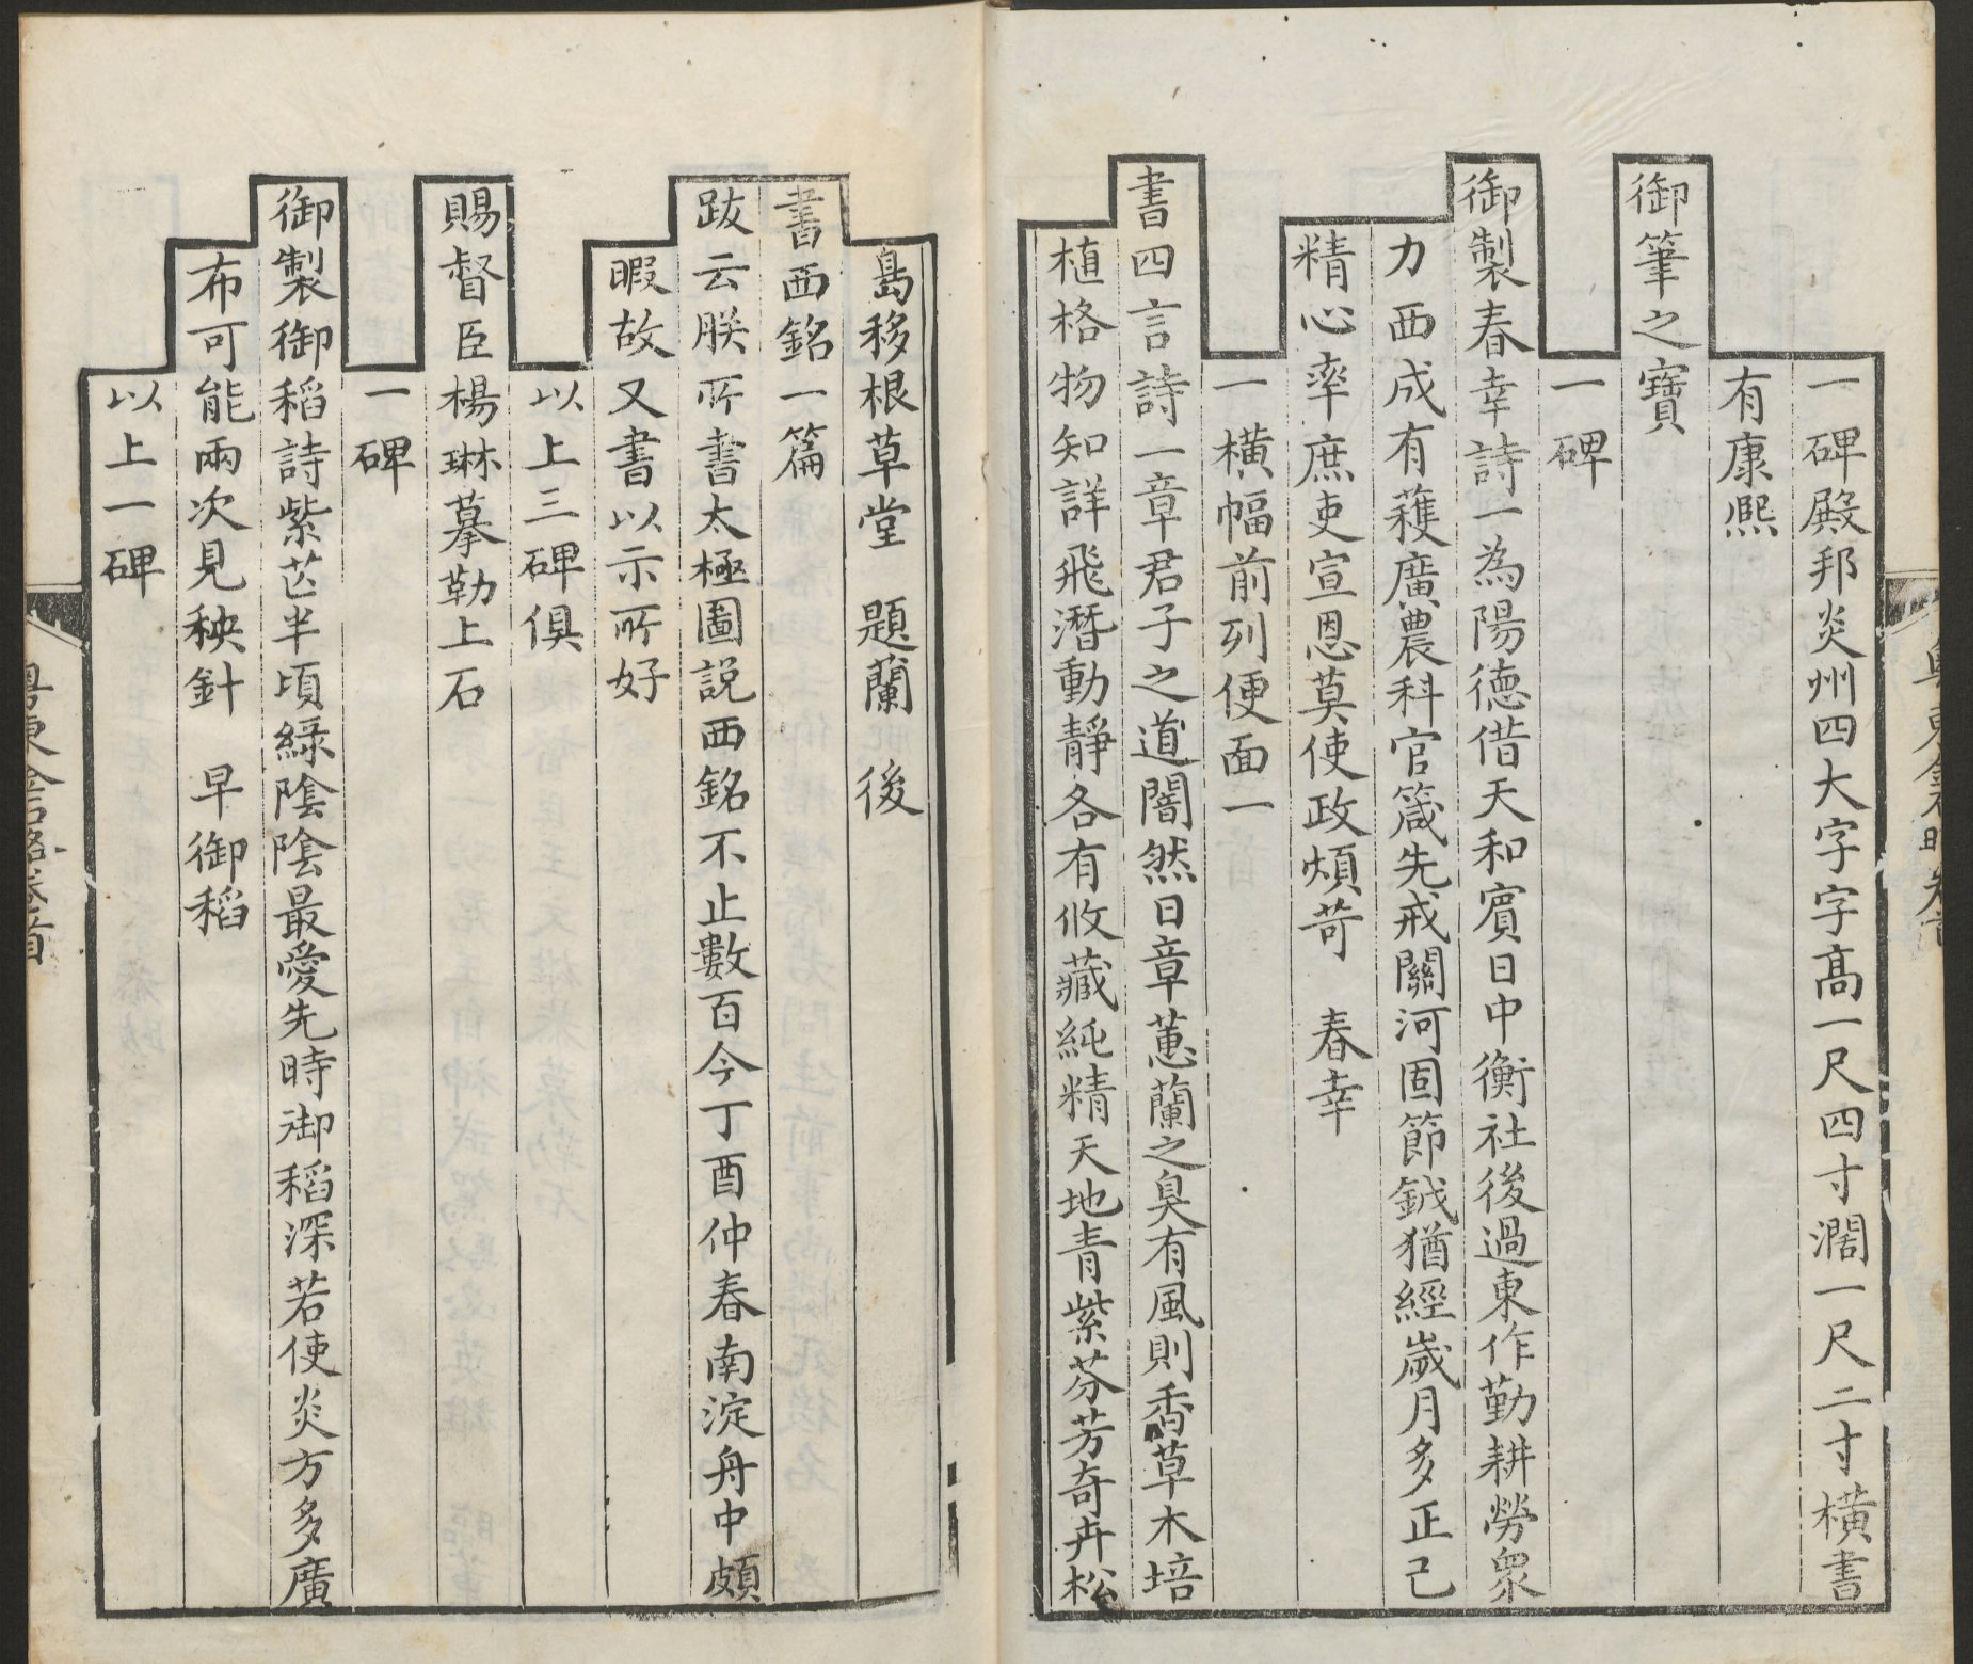 一碑殿邦炎州四大字字高一尺四寸濶一尺二寸橫書
有康熙
御筆之寶
一碑
御製春幸詩一為陽德借天和賔日中衡社後過東作勤耕勞衆
力西成有蕹廣農科官箴先戒關河固節鉞猶經歲月多正己
精心率庶吏宣恩莫使政煩苛　春幸
一橫幅前列便面一
書四言詩一章君子之道闇然日章蕙蘭之臭有風則香草木培
植格物知詳飛潛動靜各有攸藏純精天地青紫芬芳奇卉松
島移根草堂　題蘭　後
書西銘一篇
跋云朕所書太極圖説西銘不止數百今丁酉仲春南淀舟中頗
暇故又書以示所好
以上三碑俱
賜督臣楊琳摹勒上石
一碑
御製御稻詩紫芒半頃綠陰陰最愛先時御稻深若使炎方多廣
布可能兩次見秧針　早御稻
以上一碑
粵東金石略卷首